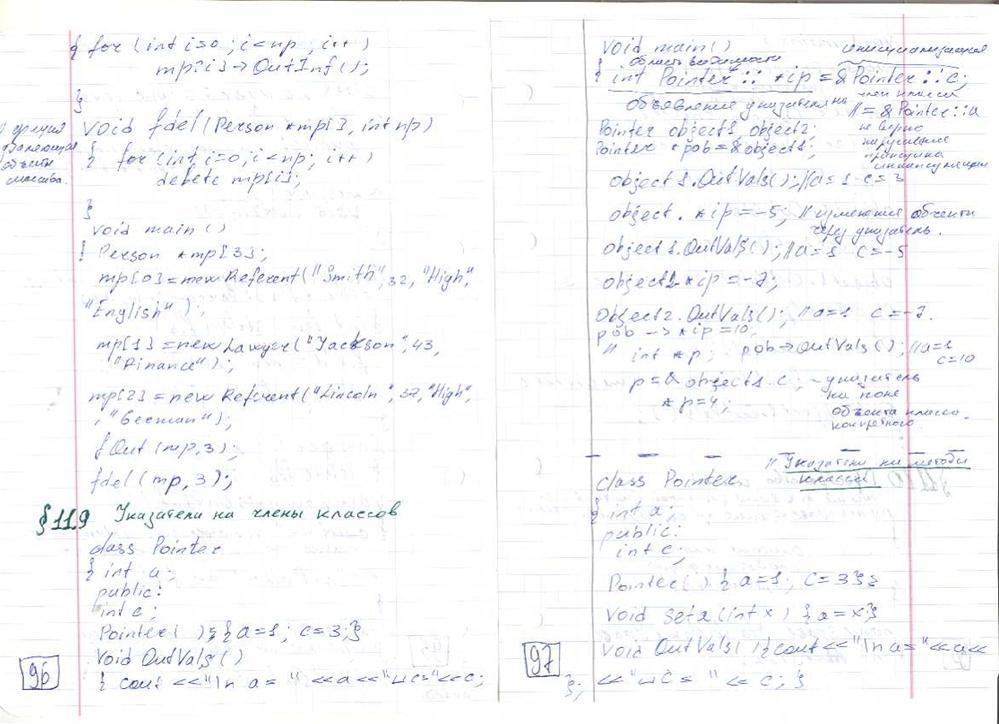 { for (int i=0; i<np; i++)
mp[i]->OutInf();
}
void fdel(Person *mp[], int np)
{ for (int i=0; i<np; i++)
delete mp[i];
}
void main()
{ Person *mp[3];
mp[0]=new Referent("Smith", 32, "High",
"English");
mp[1]=new Lawyer("Jackson", 43,
"Finance");
mp[2]=new Referent("Lincoln", 37, "High",
, "German");
fOut(mp,3);
fdel(mp,3);
§11.9 Указатели на члены классов
class Pointer
{ int a;
public:
int c;
Pointer( ) { a=1; c=3;}
void OutVals()
96 { cout <<"\n a= " <<a<<"␣c="<<c;
void main()
инициализация
{ область видимости
int Pointer:: *ip = & Pointer::c;
объявление указателя на член класса
// = & Pointer::a
не верно
нарушение
принципа
инкапсуляции
Pointer object1, object2;
Pointer *pob=&object1;
object1.OutVals(); //a=1 c=3
object. *ip=-5; // изменение объекта
через указатель.
object1.OutVals(); //a=1 c=-5
object2.*ip=-7;
object2.OutVals(); //a=1 c=-7.
pob -> *ip=10;
// int *p; pob->OutVals(); //a=1
c=10
p=& object1.c; - указатель
на поле
*p=4;
объекта класса
конкретного.
// Указатели на методы
класса
class Pointer
{ int a;
public:
int c;
Pointer( ) { a=1; c=3}
void seta(int x) {a=x}
void OutVals( ){cout<<"\n a="<<a<<
97 <<"␣c= "<<c; }
};